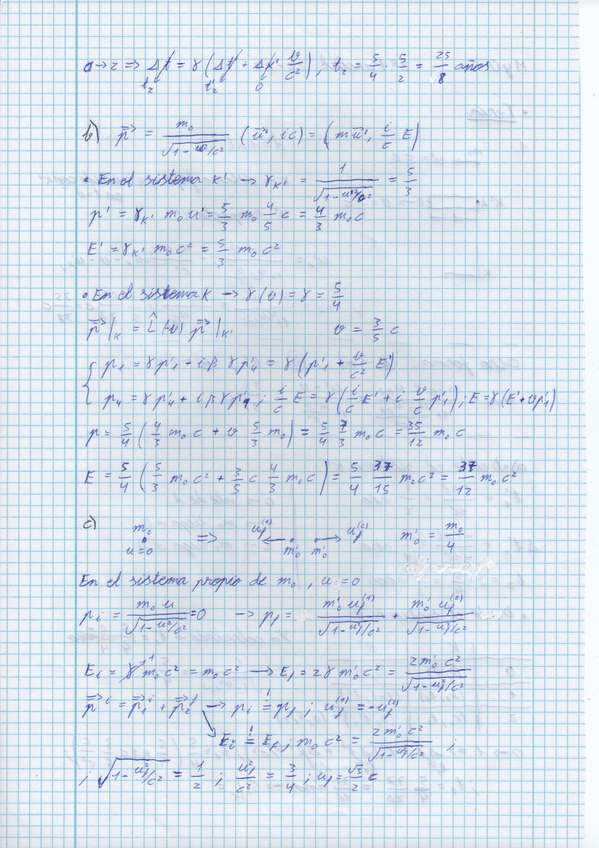 a→2 ⇒ Δt = γ (Δt' + Δx' v/c²), t₂ = 5/4 · 5/2 = 25/8 años
t₂ t₂' 0
b) p⃗ = m₀/√(1-u²/c²) (u⃗, ic) = (mu⃗, i/c E)
• En el sistema K' → γ_K' = 1/√(1-u'²/c²) = 5/3
p' = γ_K' m₀ u' = 5/3 m₀ 4/5 c = 4/3 m₀ c
E' = γ_K' m₀ c² = 5/3 m₀ c²
• En el sistema K → γ(v) = γ = 5/4
p⃗|_K = L̂(-v) p⃗|_K' v = 3/5 c
p₁ = γp'₁ - iβγp'₄ = γ(p'₁ + v/c² E')
p₄ = γp'₄ + iβγp'₁ ; i/c E = γ(i/c E' + i v/c p'₁) ; E = γ(E' + vp'₁)
p = 5/4 (4/3 m₀ c + v 5/3 m₀) = 5/4 7/3 m₀ c = 35/12 m₀ c
E = 5/4 (5/3 m₀ c² + 3/5 c 4/3 m₀ c) = 5/4 37/15 m₀ c² = 37/12 m₀ c²
c) m₀ u=0 ⇒ u_f⁽¹⁾ ← m'₀ m'₀ → u_f⁽²⁾ m'₀ = m₀/4
En el sistema propio de m₀, u = 0
p_i = m₀ u/√(1-u²/c²) = 0 → p_f = m'₀ u_f⁽¹⁾/√(1-u_f²/c²) + m'₀ u_f⁽²⁾/√(1-u_f²/c²)
E_i = γ¹ m₀c² = m₀c² → E_f = 2γ m'₀ c² = 2m'₀ c²/√(1-u_f²/c²)
p⃗ⁱ = p⃗₁ᶠ + p⃗₂ᶠ → p_i = p_f ; u_f⁽¹⁾ = -u_f⁽²⁾
E_i = E_f, m₀ c² = 2m'₀ c²/√(1-u_f²/c²) ;
; √(1-u_f²/c²) = 1/2 ; u_f²/c² = 3/4 ; u_f = √3/2 c